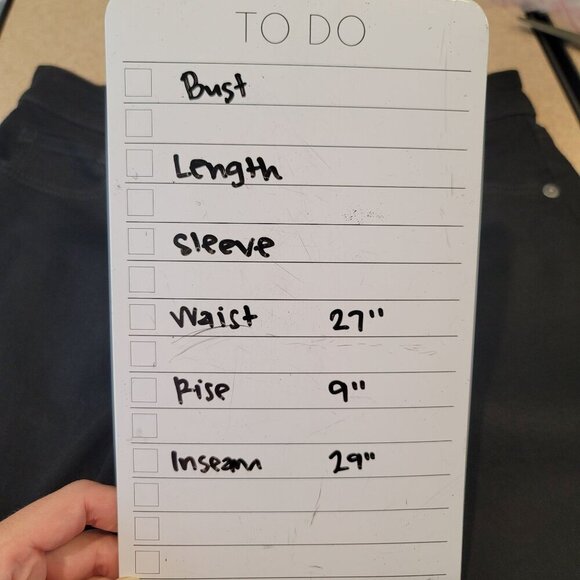 TO DO
Bust
Length
Sleeve
Waist 27"
Rise 9"
Inseam 29"